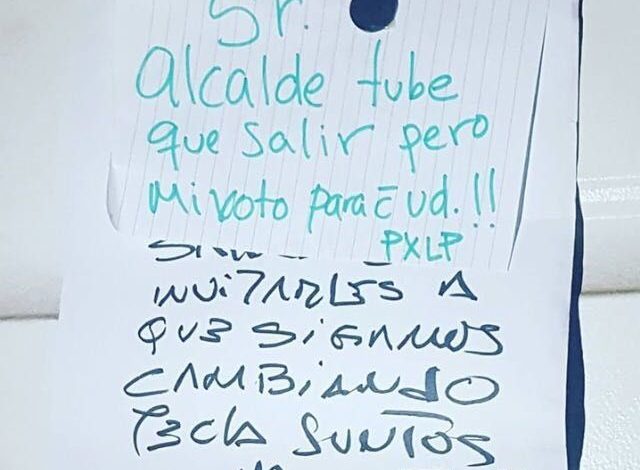 Sr.
Alcalde tube
que salir pero
Mi voto para Ud.!!
PXLP
INVITARLES A
QUE SIGAMOS
CAMBIANDO
TECLA JUNTOS